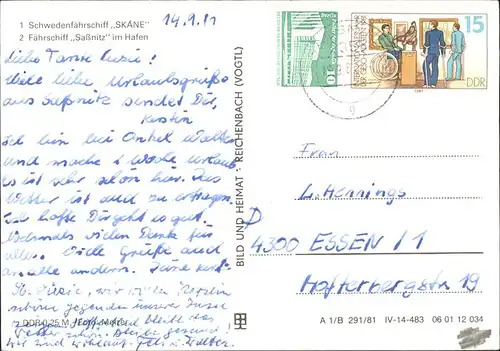 1 Schwedenfährschiff „SKÅNE“
2 Fährschiff „Saßnitz“ im Hafen
14.9.81
Liebe Tante Luzie!
Viele liebe Urlaubsgrüße
aus Saßnitz sendet Dir,
Kerstin
Ich bin bei Onkel Walter
und mache 1 Woche Urlaub
es ist sehr schön hier. Das
Wetter ist auch zu ertragen.
Ich hoffe Dir geht es gut.
Nochmals vielen Dank für
alles. Viele Grüße auch
an alle anderen. Deine
Luzie, wir
schöne gegenden unserer Insel
bleibt das
Wetter schön. Bleibe gesund
wir sind wohlauf. Walter.
DDR 0,25 M
BILD UND HEIMAT · REICHENBACH (VOGTL)
10
15
DDR
1981
Frau
L. Hennings
D
4300 ESSEN 11
19
A 1/B 291/81 IV-14-483 06 01 12 034